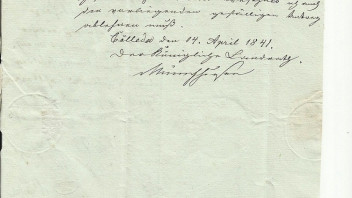 der vorliegenden gefälligen Antrag
ablehnen muß.
Cölleda den 14. April 1841.
Der Königliche Landrath.
Münchhausen